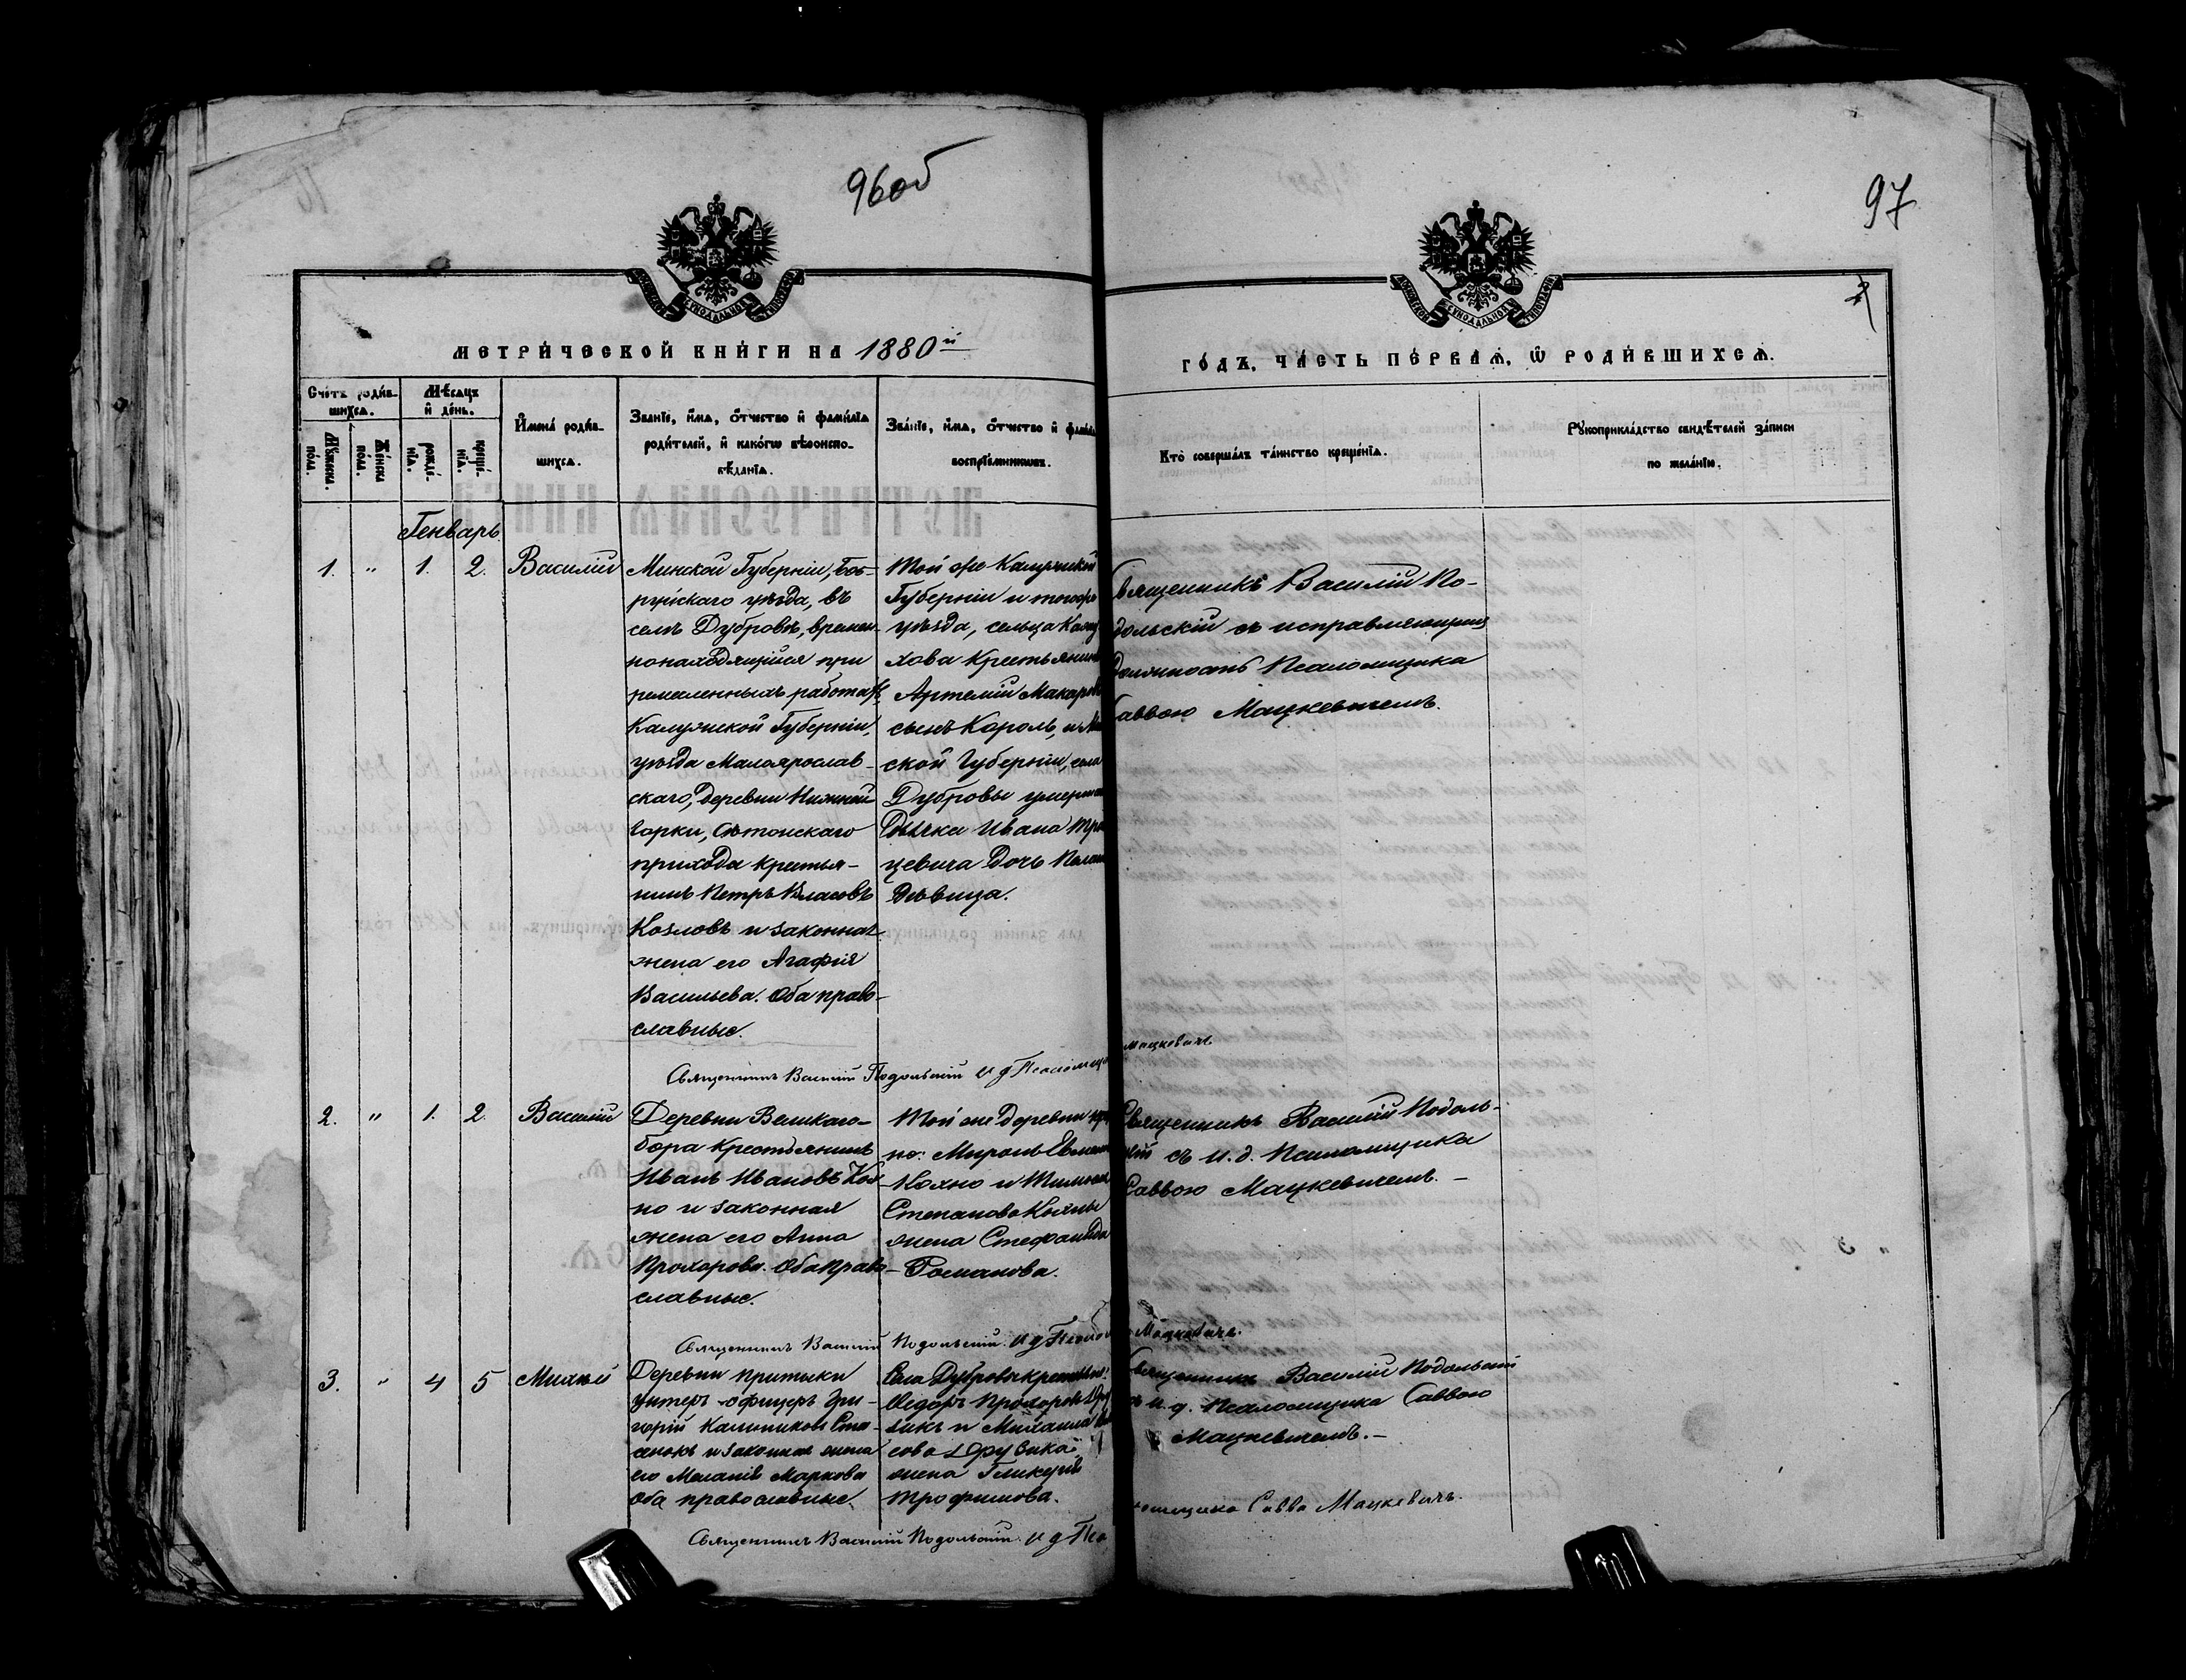 96об
97
МЕТРИЧЕСКОЙ КНИГИ НА 1880й
ГОДЪ, ЧАСТЬ ПЕРВАЯ, Ѡ РОДИВШИХСЯ.
Счетъ родив-
шихся.
Мѣсяцъ
и день.
Мужеска
пола.
Женска
пола.
рожде-
нія.
креще-
нія.
Имена родив-
шихся.
Званіе, имя, отчество и фамилія
родителей, и какогѡ вѣроиспо-
вѣданія.
Званіе, имя, отчество и
воспріемниковъ.
Кто совершалъ таинство крещенія.
Рукоприкладство свидѣтелей записи
по желанію.
Генварь
1. " 1. 2. Василій
Минской Губерніи, Боб-
руйскаго уѣзда, въ
селѣ Дубровѣ, времен-
нонаходящійся при
работахъ,
Калужской Губерніи,
уѣзда Малоярослав-
скаго, деревни Нижней
горки,
прихода крестья-
нинъ Петръ Власовъ
Козловъ и законная
жена его Агафія
Васильева. Оба право-
славные.
Той же Калужской
Губерніи и тогоже
уѣзда, сельца
хова крестьянинъ
Артемій Макаровъ
сынъ Король, и
ской Губерніи, села
Дубровы
Ивана
цевича дочь
Дѣвица.
Священникъ Василій По-
дольскій съ исправляющимъ
должность Псаломщика
Саввою Мацкевичемъ.
Священникъ Василій Подольскій И д
Мацкевичъ
2. " 1. 2. Василій
Деревни Великаго-
бора крестьянинъ
Иванъ Ивановъ Кох-
но и законная
жена его Анна
Прохорова. Оба право-
славные.
Той же деревни
Миронъ
Кохно и
Степанова Кохны
жена Стефанида
Романова.
Священникъ Василій Подоль-
скій съ и. д. Псаломщика
Саввою Мацкевичемъ. –
Священникъ Василій Подольскій. И д
Мацкевичъ.
3. " 4 5 Михаилъ
Деревни Притыки
унтеръ-офицеръ Гри-
горій Калинниковъ
и законная жена
его Меланія Маркова
Оба православные.
Села Дубровы
Ѳедоръ Прохоровъ
и Михаила
жена Гликерія
Трофимова.
Священникъ Василій Подольскій
съ и. д. Псаломщика Саввою
Мацкевичемъ. –
Священникъ Василій Подольскій. И д
Савва Мацкевичъ.